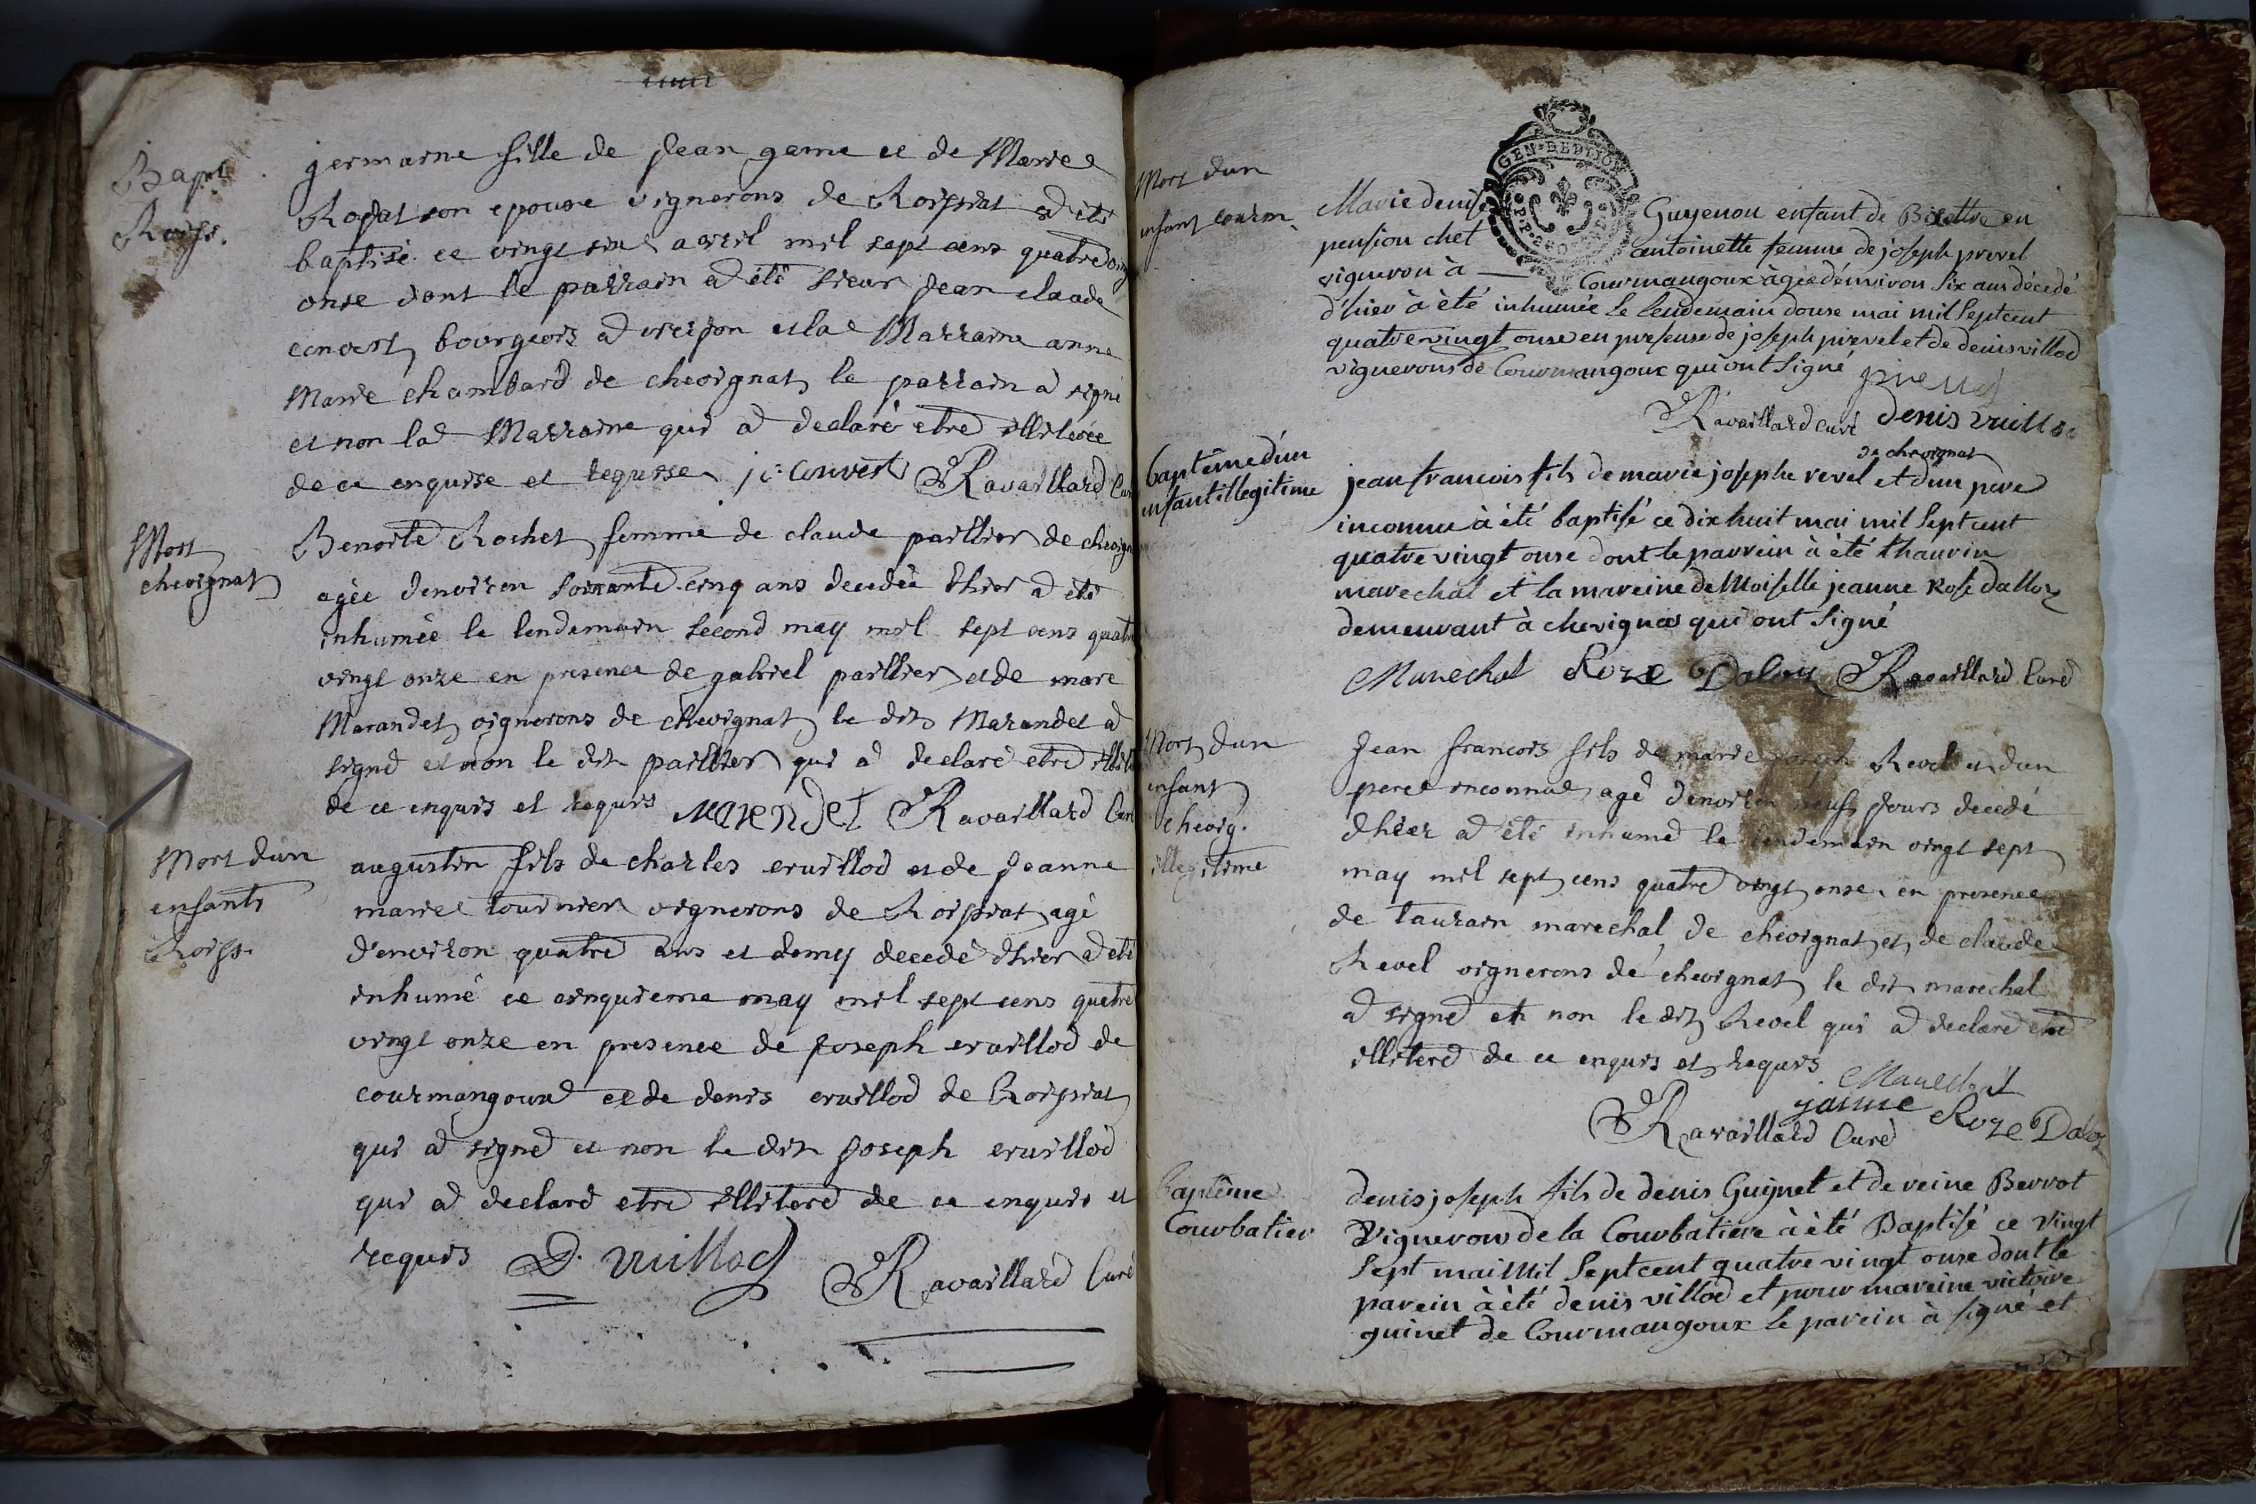 Bapt
Roiss.
germaine fille de Jean game et de Marie
Ropat son epouse vignerons de Roissiat a été
baptisé ce vingt six avril mil sept cens quatre vingt
onse dont le parrain a été sieur Jean claude
convert bourgeois a et la Marraine anne
Marie chambard de chevignat le parrain a signé
et non la Marraine qui a declaré etre illiterée
de ce enquise et requise j: c: Convert Ravaillard Curé
Mort
chevignat
Benoite Rochet femme de claude paillier de chevignat
agée denviron soixante cinq ans decedée d'hier a été
inhumée le lendemain second may mil sept cens quatre
vingt onze en presence de gabriel paillier et de marc
Marandet vignerons de chevignat le dit Marandet a
signé et non le dit paillier qui a declaré etre
de ce enquis et requis Marendet Ravaillard Curé
Mort dun
enfant
Roiss.
augustin fils de charles vuillod et de Jeanne
marie tournier vignerons de Roissiat agé
d'environ quatre ans et demy decedé d'hier a été
inhumé ce cinquieme may mil sept cens quatre
vingt onze en presence de joseph vuillod de
courmangoux et de denis vuillod de Roissiat
qui a signé et non le dit joseph vuillod
qui a declaré etre illiteré de ce enquis et
requis D. vuillod Ravaillard Curé
Mort dun
enfant courm
GEN. DE DIJON
Marie denise Guyenon enfant de Bisettre en
pension chet antoinette femme de joseph prevel
vigneron à Courmangoux àgée d'énviron six ans décedé
d'hier à èté inhumée le lendemain douse mai mil sept cent
quatrevingt onse en presense de joseph prevel et de denis villod
vignerons de Courmangoux qui ont signé prevel
Ravaillard curé denis vuillod
baptême d'un
enfant illegitime
de chevignat
jean francois fils de marie josephe revel et d'un pere
inconnu à été baptisé ce dix huit mai mil sept cent
quatre vingt onse dont le parrein à été thaurin
marechal et la mareine demoiselle jeanne Rose dalloz
demeurant à chevignas qui ont signé
Marechal Roze Daloz Ravaillard Curé
Mort dun
enfant
chevig.
illegitime
Jean francois fils de marie joseph Revel et d'un
pere inconnu agé d'environ neufs jours decedé
d'hier a été inhumé le lendemain vingt sept
may mil sept cens quatre vingt onse en presence
de taurain marechal de chevignat et de claude
Revel vignerons de chevignat le dit marechal
a signé et non le dit Revel qui a declaré etre
illiteré de ce enquis et requis Marechal
janne Roze Daloz
Ravaillard Curé
baptême
Courbatier
denis joseph fils de denis Guignet et de reine Berrot
vigneron de la Courbatiere à èté Baptisé ce vingt
sept mai mil sept cent quatre vingt onse dont le
parein à été denis villod et pour mareine victoire
guinet de Courmangoux le parein à signé et